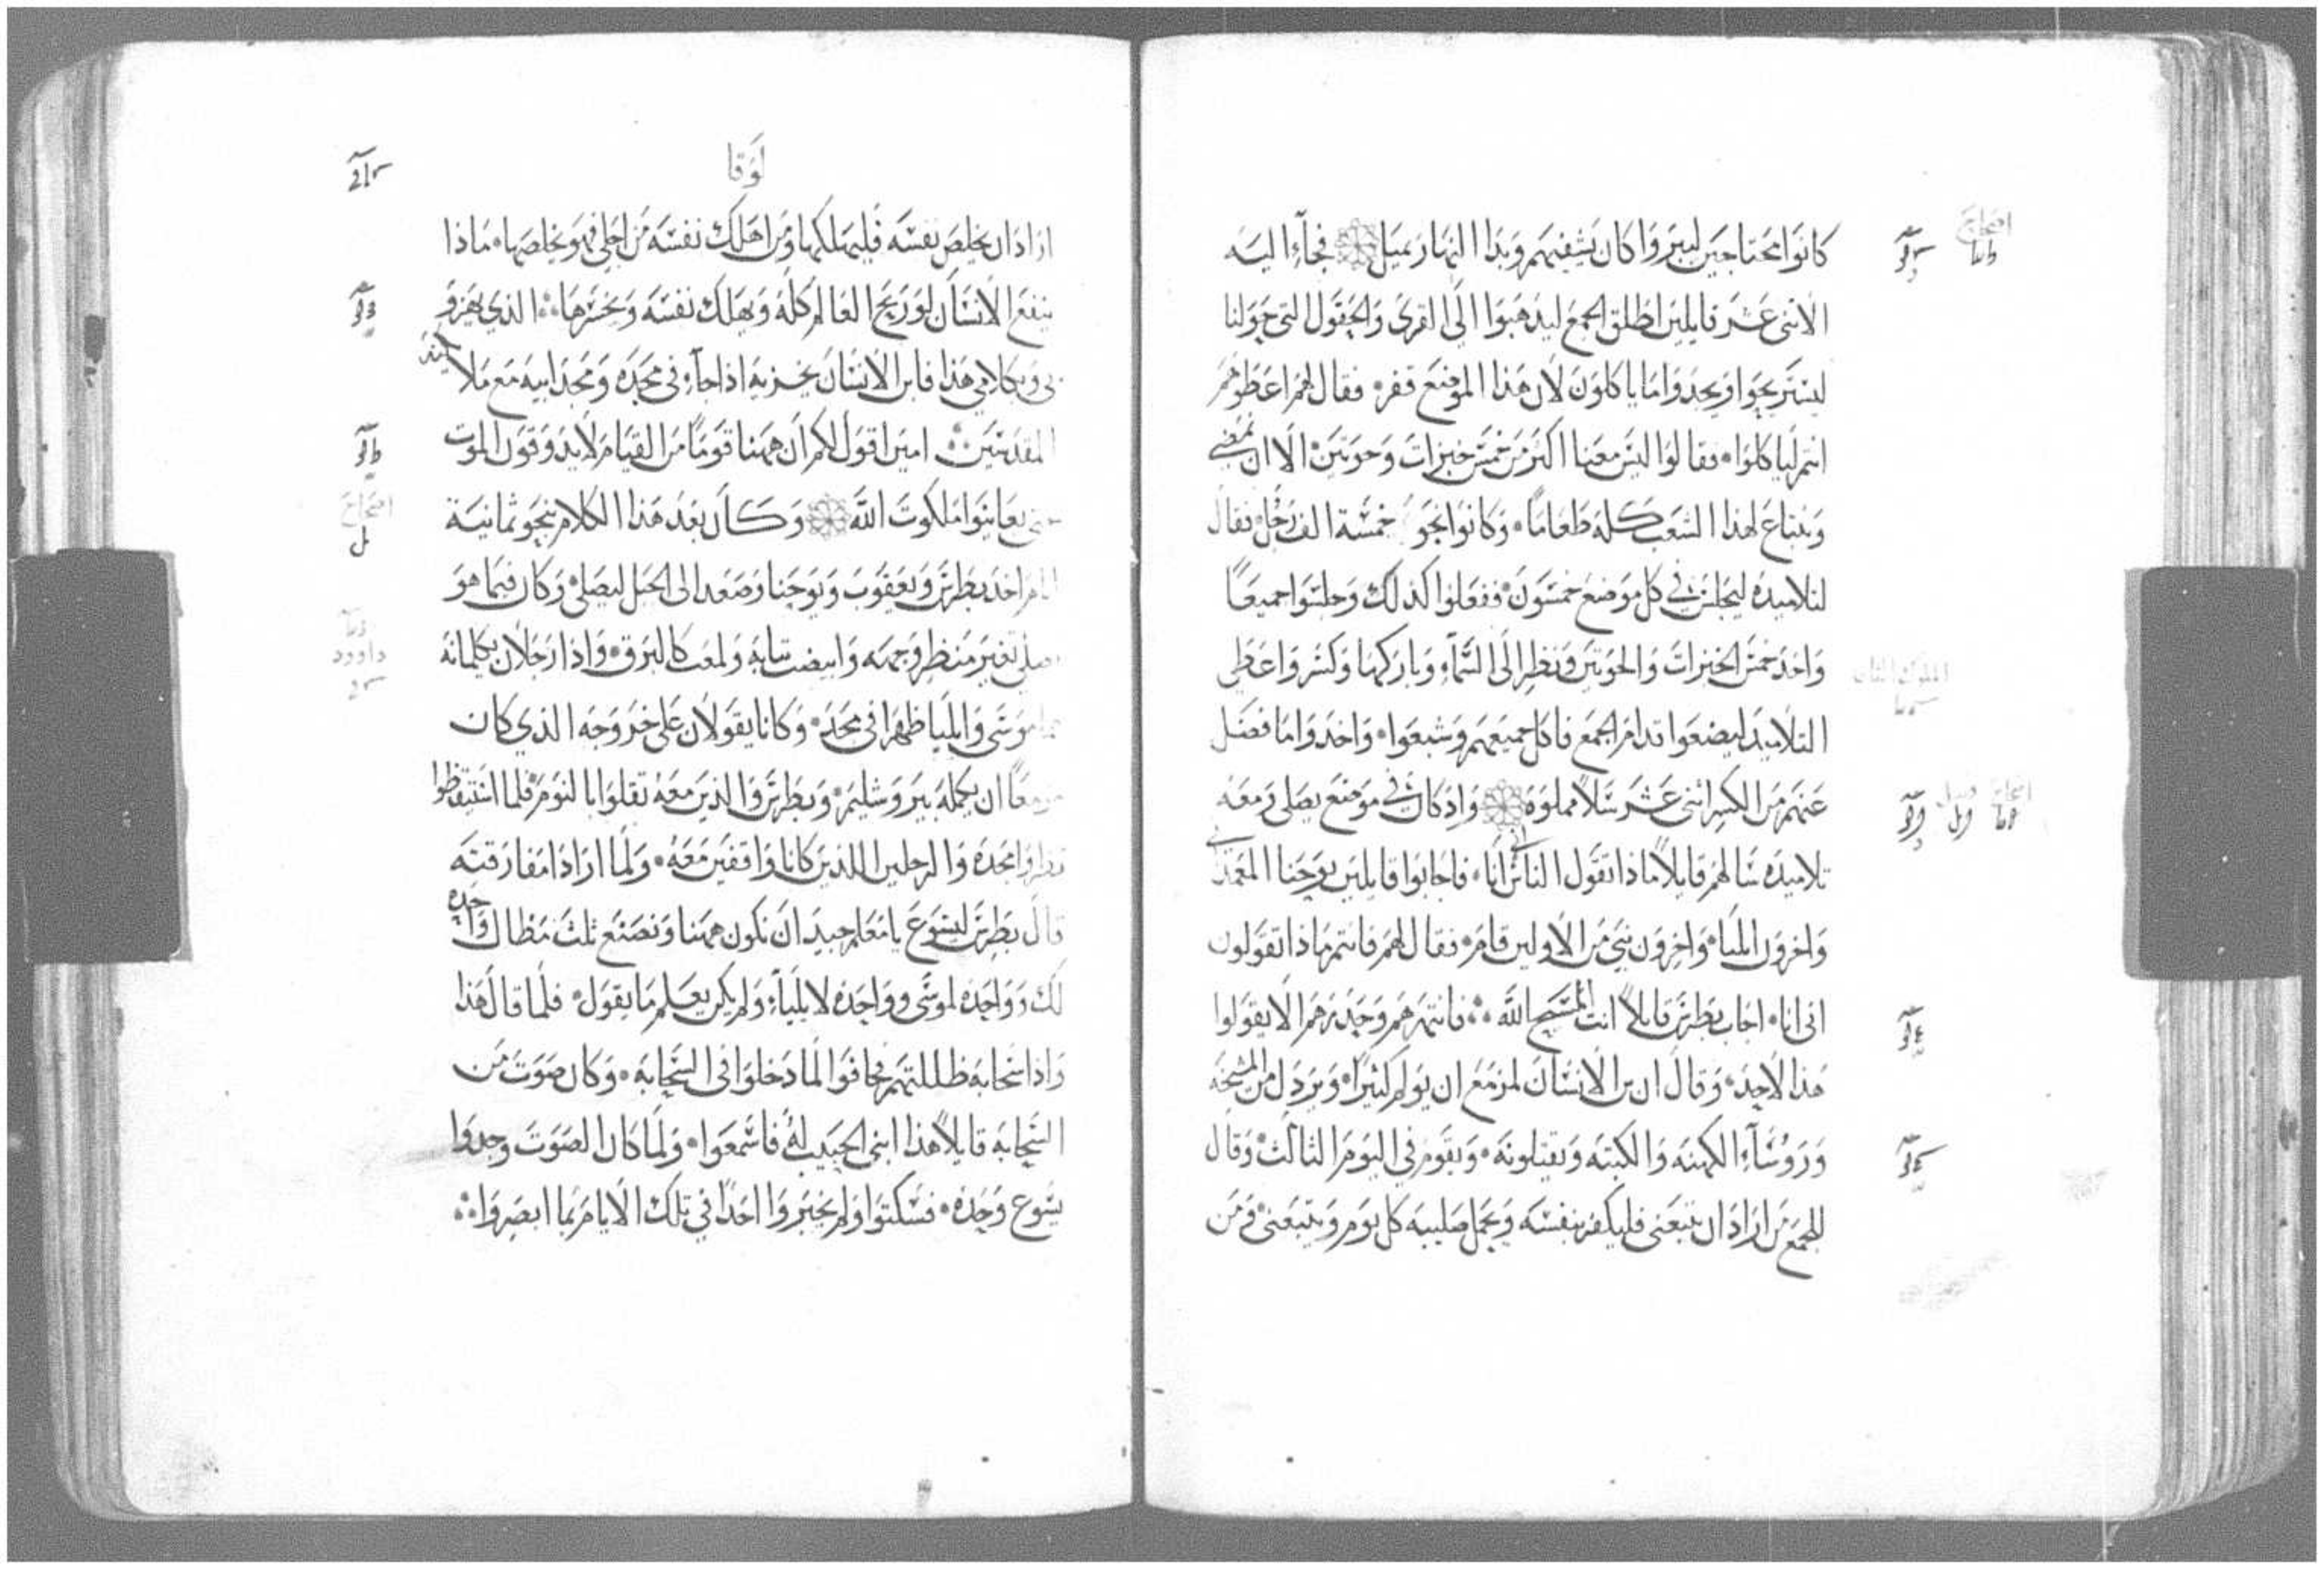 كانوا محتاجين ليبروا كان يشفيهم وبدا النهار يميل فجآء اليه
الاثنى عشر قايلين اطلق الجمع ليذهبوا الى القرى والحقول التى حولنا
ليستريحوا ويجدوا ما ياكلون لان هذا الموضع قفر فقال لهم اعطوهم
انتم ليا كلوا فقالوا ليس معنا اكثر من خمس خبزات وحوتين الا ان نمضي
ونبتاع لهذا الشعب كله طعاما وكانوا نحو خمسة الف رجل فقال
لتلاميده ليجلس في كل موضع خمسون ففعلوا كذلك وجلسوا جميعًا
واخد خمس الخبزات والحوتين ونظر الى السمآء وباركها وكسر واعطي
التلاميد ليضعوا قدام الجمع فاكل جميعهم وشبعوا واخدوا ما فضل
عنهم من الكسر اثنى عشر سلًا مملوه واذ كان في موضع يصلى ومعه
تلاميده سالهم قايلًا ماذا تقول الناس انى انا فاجابوا قايلين يوحنا المعمدانى
واخرون ايليا واخرون نبي من الاولين قام فقال لهم فانتم ماذا تقولون
انى انا اجاب بطرس قايلًا انت المسيح الله فانتهرهم وحدرهم الا يقولوا
هذا لاحد وقال ان بن الانسان لمزمع ان يولم كثيرًا ويردل من المشيخه
وروسآء الكهنه والكتبه ويقتلونه ويقوم في اليوم الثالث وقال
للجمع من اراد ان يتبعنى فليكفر بنفسه ويحمل صليبه كل يوم ويتبعنى ومن
اصحاح
لوقا
اراد ان يخلص نفسه فليهلكها ومن اهلك نفسه من اجلى فهو يخلصها ماذا
ينفع الانسان لو ربح العالم كله ويهلك نفسه ويخسرها الذي يهزو
بى وبكلامي هذا فابن الانسان يخزيه اذا جآء في مجده ومجد ابيه مع ملايكته
المقدسين امين اقول لكم ان ههنا قومًا من القيام لا يدوقون الموت
حتى يعاينوا ملكوت الله وكان بعد هذا الكلام بنحو ثمانية
ايام اخد بطرس ويعقوب ويوحنا وصعد الى الجبل ليصلى وكان فيما هو
يصلي تغير منظر وجهه وابيضت تيابه ولمعت كالبرق واذا رجلان يكلمانه
هما موسى وايليا ظهرا في مجد وكانا يقولان على خروجه الذي كان
مزمعًا ان يكمله بيروشليم وبطرس والذين معه تقلوا بالنوم فلما استيقظوا
نظروا مجده والرجلين اللذين كانا واقفين معه ولما ارادا مفارقته
قال بطرس ليسوع يا معلم جيد ان نكون ههنا ونصنع ثلث مظال واحده
لك وواحده لموسى وواحده لايليآء ولم يكن يعلم ما يقول فلما قال هذا
واذا سحابه ظللتهم فخافوا لما دخلوا في السحابه وكان صوت من
السحابه قايلًا هذا ابنى الحبيب له فاسمعوا ولما كان الصوت وجدوا
يسوع وحده فسكتوا ولم يخبروا احدًا في تلك الايام بما ابصروا
اصحاح
داوود